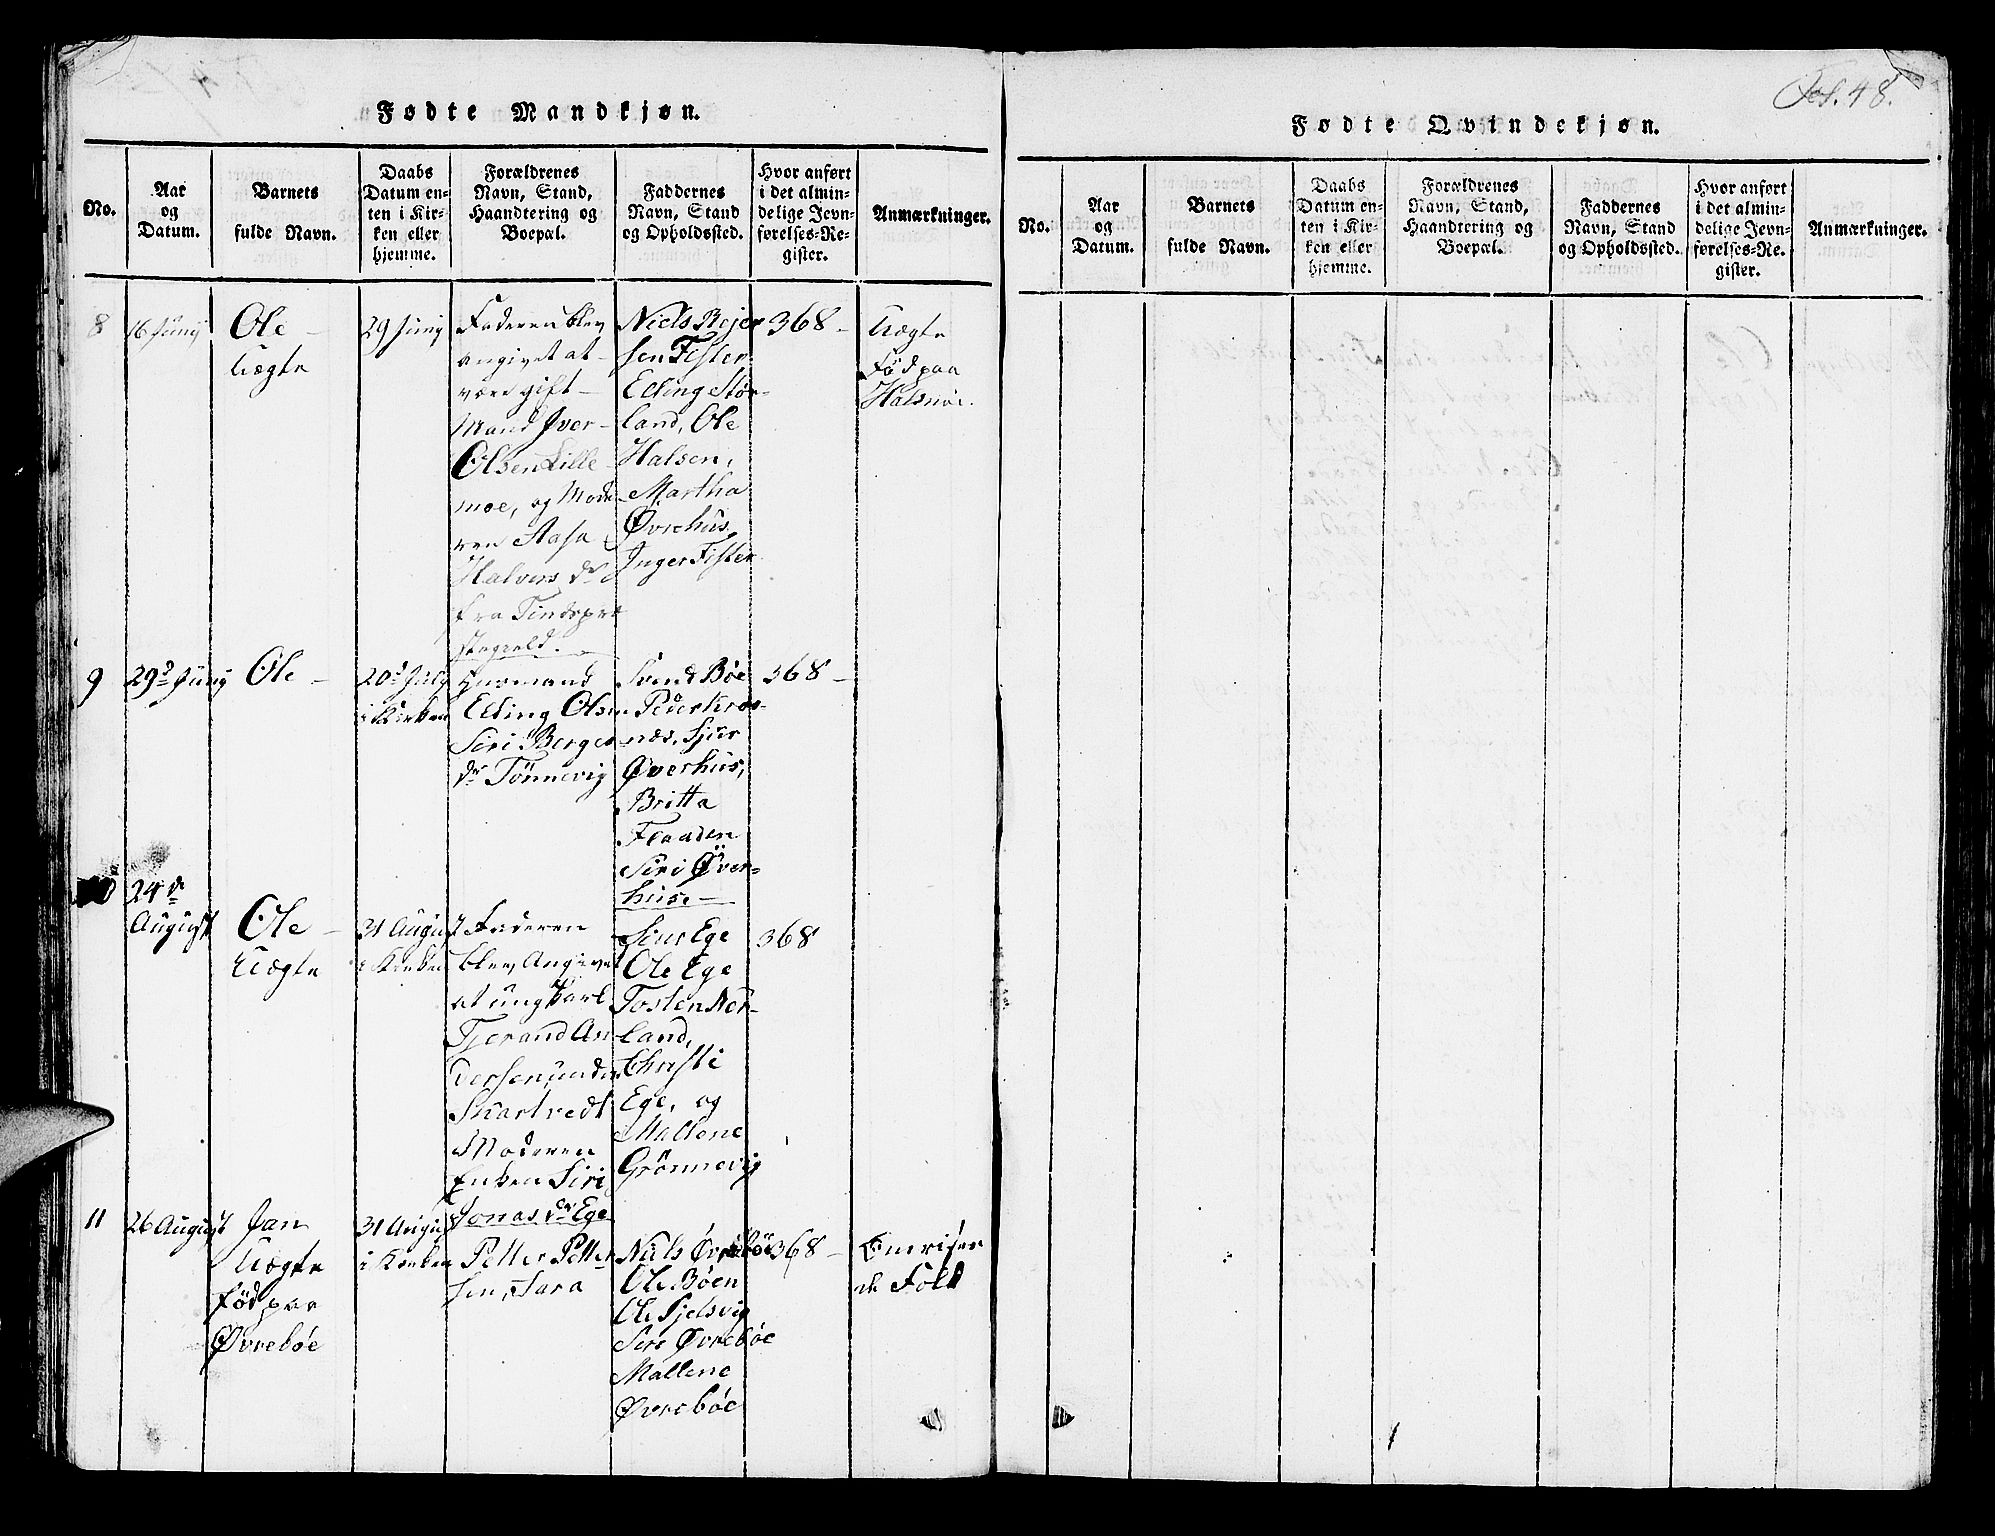 Fol. 48.
Fødte Mandkjøn.
No.
Aar
og
Datum.
Barnets
fulde Navn.
Daabs
Datum en-
ten i Kir-
ken eller
hjemme.
Forældrenes
Navn, Stand,
Haandtering og
Boepæl.
Faddernes
Navn, Stand
og Opholdssted.
Hvor anført
i det almin-
delige Jevn-
førelses-Re-
gister.
Anmærkninger.
8
16 Junij
Ole –
Uægte
29 Junij
Faderen blev
angivet at
være gift
Mand Iver
Olsen Lille-
moe, og Mode-
ren Aasa
Halvors dr
fra Tindspræ
stegield.
Niels Rejer
sen Fister
Elling Stør-
land, Ole
Halsen,
Martha
Øvrehus
Inger Fister
368 –
Uægte
Fød paa
Halsnøe.
9
29d Junij
Ole –
20d July
i Kirken
Huusmand
Elling Olsen
Siri Berges
dr Tönnevig
Svend Böe
Peder
næs, Sjur
Øverhus,
Britta
Flaaden
Siri Øver-
huse –
368 –
10
24de
August
Ole –
Uægte
31 August
i Kirken
Faderen
blev Angivet
at ungkarl
Tjerand An
dersen under
Skartvedt
Moderen
Enken Siri
Jonas dr Ege
Ege
Ole Ege
Tosten Ner-
land,
Christi
Ege, og
Mallene
Grönnevig
368
11
26 August
Jan
Uægte
född paa
Øvreböe
31 August
i Kirken
Petter Petter
sen, Sara
Niels Øvreböe
Ole Böen
Ole Fjelsvig
Siri Øvreböe
Mallene
Øvreböe
368 –
Omrejsen
de Folk
Fødte Qvindekjøn.
No.
Aar
og
Datum.
Barnets
fulde Navn.
Daabs
Datum en-
ten i Kir-
ken eller
hjemme.
Forældrenes
Navn, Stand,
Haandtering og
Boepæl.
Faddernes
Navn, Stand
og Opholdssted.
Hvor anført
i det almin-
delige Jevn-
førelses-Re-
gister.
Anmærkninger.